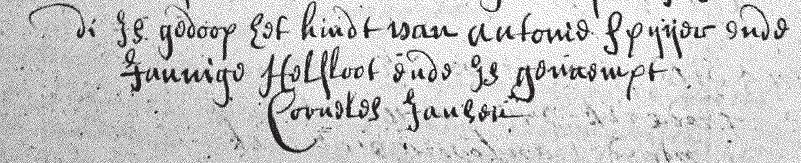 di Js gedoop het kindt van Antonie Spyyer ende
Jannige Helsloot ende Js genaempt
Corneles Jansen